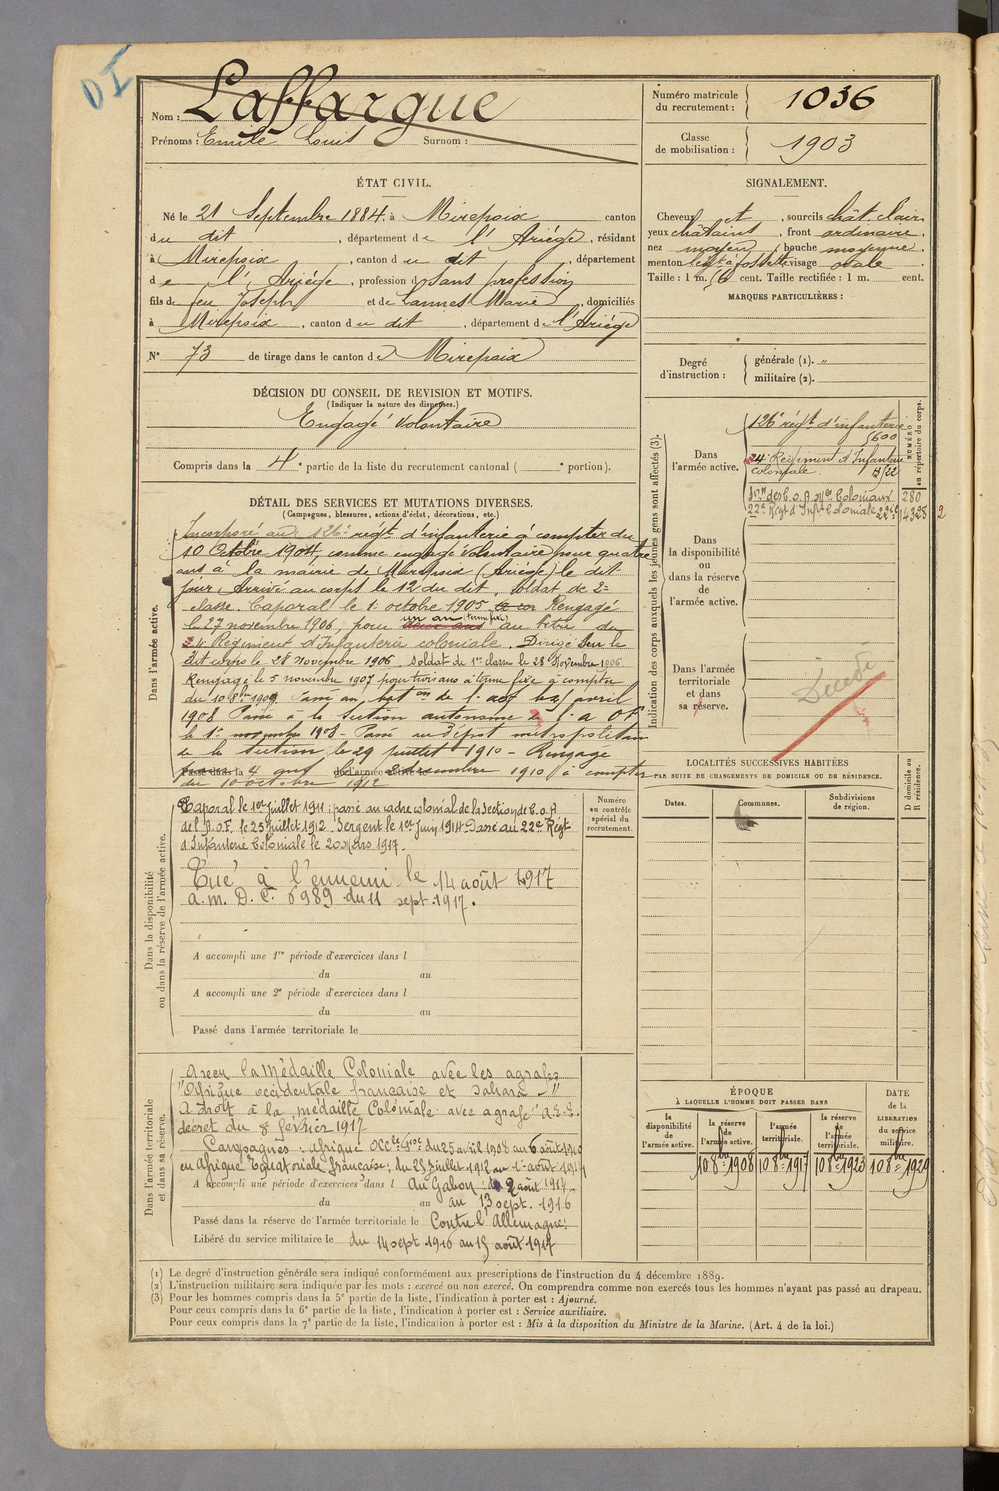 DI
Nom : Laffargue
Prénoms : Emile Louis Surnom :
Numéro matricule du recrutement : 1036
Classe de mobilisation : 1903
ÉTAT CIVIL.
Né le 21 Septembre 1884, à Mirepoix canton
du dit, département de l'Ariège, résidant
à Mirepoix, canton du dit, département
de l'Ariège, profession d sans profession
fils de feu Joseph et de Lannes Marie, domiciliés
à Mirepoix, canton du dit, département de l'Ariège
N° 73 de tirage dans le canton de Mirepoix
SIGNALEMENT.
Cheveux et, sourcils chât. clair
yeux châtains, front ordinaire,
nez moyen, bouche moyenne,
menton à fossette visage ovale
Taille : 1 m. 56 cent. Taille rectifiée : 1 m. cent.
MARQUES PARTICULIÈRES :
Degré d'instruction : générale (1). "
militaire (2).
DÉCISION DU CONSEIL DE REVISION ET MOTIFS.
(Indiquer la nature des dispenses.)
Engagé Volontaire
Compris dans la 4e partie de la liste du recrutement cantonal ( e portion).
DÉTAIL DES SERVICES ET MUTATIONS DIVERSES.
(Campagnes, blessures, actions d'éclat, décorations, etc.)
Dans l'armée active.
Incorporé au 126e régt d'infanterie à compter du
10 Octobre 1904, comme engagé volontaire pour quatre
ans à la mairie de Mirepoix (Ariège) le dit
jour Arrivé au corps le 12 du dit, soldat de 2e
classe. Caporal le 1er octobre 1905. Rengagé
le 27 novembre 1906, pour un an (terme fixe) au titre du
24e Régiment d'Infanterie coloniale. Dirigé sur le
dit corps le 28 Novembre 1906. Soldat de 1re classe le 28 Novembre 1906.
Rengagé le 5 novembre 1907 pour trois ans à terme fixe à compter
du 10 8bre 1909 Passé au bat on de l'aof avril
1908 Passé à la Section autonome de l'a OF
le 1er novembre 1908 - Passé au Dépôt métropolitain
de la Section, le 29 juillet 1910 - Rengagé
pour 4 ans le 2 décembre 1910 à compter
du 10 octobre 1912
Dans la disponibilité ou dans la réserve de l'armée active.
Caporal le 1er juillet 1911; passé au cadre colonial de la Section de C.o.A
de l'A.O.F. le 25 juillet 1912. Sergent le 1er Juin 1914 Passé au 22e Régt
d'Infanterie Coloniale le 20 Mars 1917.
Tué à l'ennemi le 14 août 1917
a.m. D.C. 6989 du 11 sept. 1917.
A accompli une 1re période d'exercices dans l
du au
A accompli une 2e période d'exercices dans l
du au
Passé dans l'armée territoriale le
Numéro au contrôle spécial du recrutement.
Dans l'armée territoriale et dans sa réserve.
a reçu la Médaille Coloniale avec les agrafes
"Afrique occidentale française et Sahara"
A droit à la médaille Coloniale avec agrafe "A.E.F."
décret du 8 février 1917
Campagnes : Afrique Occle Fçse du 25 avril 1908 au 6 août 1910
en Afrique Equatoriale française; du 25 juillet 1912 au 1er août 1914
A accompli une période d'exercices dans l au Gabon : du 2 août 1914
du au au 13 sept. 1916
Passé dans la réserve de l'armée territoriale le Contre l'Allemagne:
Libéré du service militaire le du 14 sept 1916 au 14 août 1917
Indication des corps auxquels les jeunes gens sont affectés (3).
NUMÉRO au répertoire du corps.
Dans l'armée active.
126e régt d'infanterie
5600
24e Régiment d'Infanterie
coloniale.
son des C.o.A. Mres Coloniaux 280
22e Régt d'Infie Coloniale 14325
Dans la disponibilité ou dans la réserve de l'armée active.
Dans l'armée territoriale et dans sa réserve.
Décédé
LOCALITÉS SUCCESSIVES HABITÉES
PAR SUITE DE CHANGEMENTS DE DOMICILE OU DE RÉSIDENCE.
Dates. Communes. Subdivisions de région. D domicile ou R résidence.
ÉPOQUE
À LAQUELLE L'HOMME DOIT PASSER DANS
DATE de la LIBÉRATION du service militaire.
la disponibilité de l'armée active. la réserve de l'armée active. l'armée territoriale. la réserve de l'armée territoriale.
10 8bre 1908 10 8bre 1917 10 8bre 1923 10 8bre 1929
(1) Le degré d'instruction générale sera indiqué conformément aux prescriptions de l'instruction du 4 décembre 1889.
(2) L'instruction militaire sera indiquée par les mots : exercé ou non exercé. On comprendra comme non exercés tous les hommes n'ayant pas passé au drapeau.
(3) Pour les hommes compris dans la 5e partie de la liste, l'indication à porter est : Ajourné.
Pour ceux compris dans la 6e partie de la liste, l'indication à porter est : Service auxiliaire.
Pour ceux compris dans la 7e partie de la liste, l'indication à porter est : Mis à la disposition du Ministre de la Marine. (Art. 4 de la loi.)